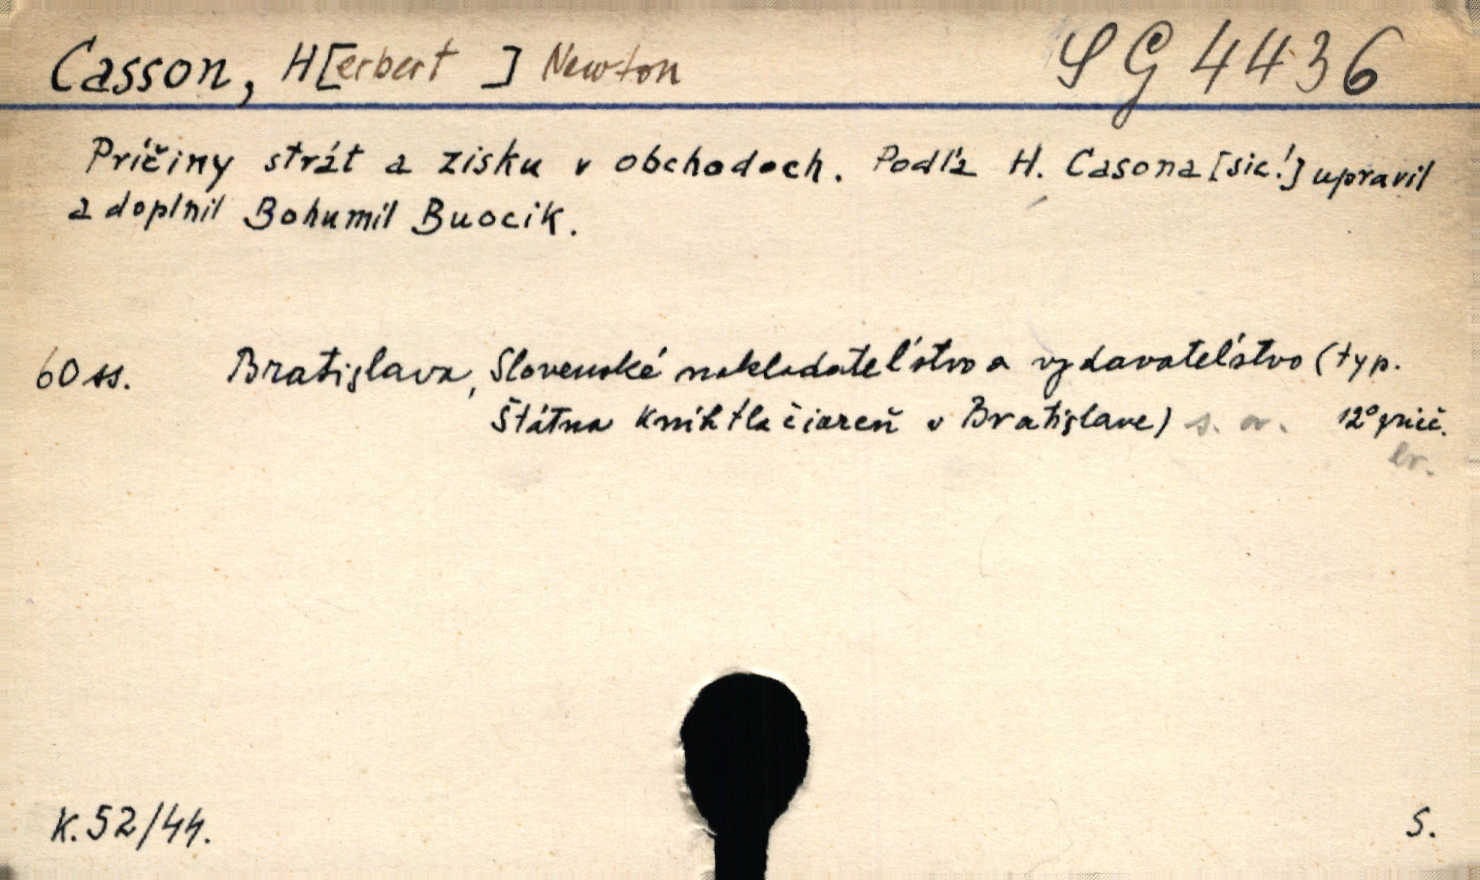 Casson, H[erbert ] Newton SG 4436
Príčiny strát a zisku v obchodoch. Podľa H. Casona [sic!] upravil
a doplnil Bohumil Buocik.
60 ss. Bratislava, Slovenské nakladateľstvo a vydavateľstvo (typ.
Štátna kníhtlačiareň v Bratislave) s. a. 12° prieč.
br.
K. 52/44. S.